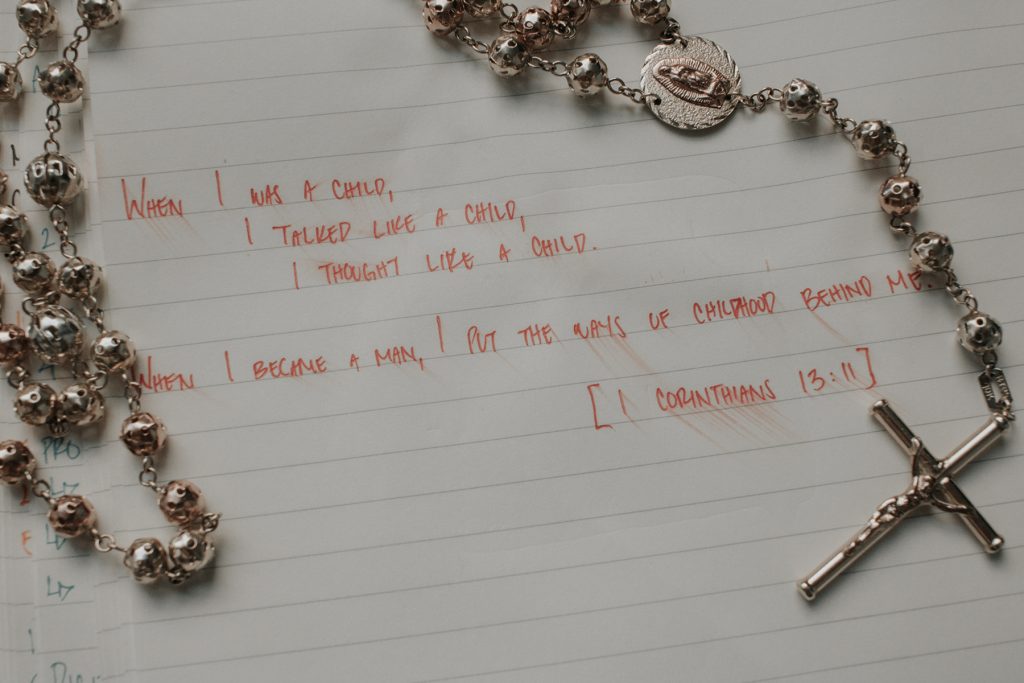 When I was a child,
I talked like a child,
I thought like a child.
When I became a man, I put the ways of childhood behind me.
[1 Corinthians 13:11]
2
PRO